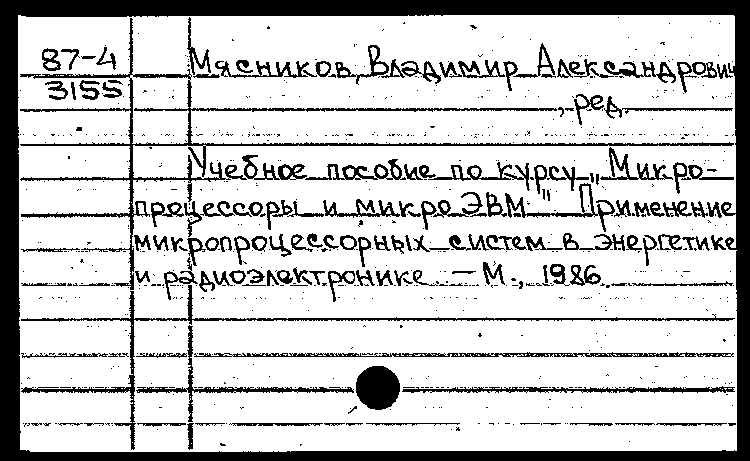 87-4
3155
Мясников, Владимир Александрович
, ред.
Учебное пособие по курсу „Микро-
процессоры и микроЭВМ" Применение
микропроцессорных систем в энергетике
и радиоэлектронике. – М., 1986.